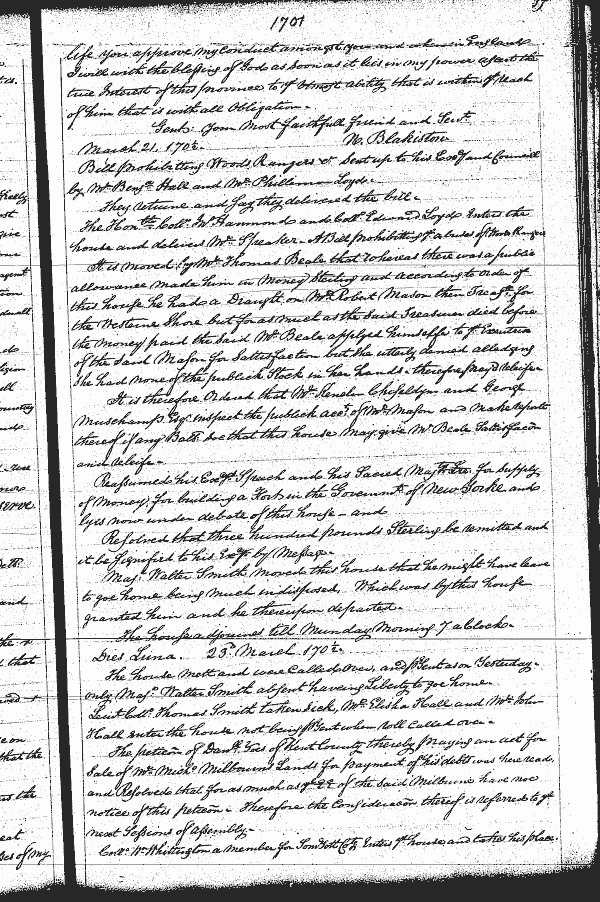 1701
life you approve my conduct amongst you and when in England
I will with the blessing of God as soon as it lies in my power assert the
true Interest of this province to ye utmost ability that is within ye reach
of him that is with all Obligation.
Gent: your Most faithfull freind and Servt.
March 21, 170½. N. Blakiston
Bill prohibiting Woods Rangers &c Sent up to his Excy and Council
by Mr Benja Hall and Mr Phillimon Loyd.
They returne and say they delivered the bill.
The Honble Coll. Jno Hammond and Coll Edward Loyd Enters the
house and delivers Mr Speaker. A Bill prohibiting ye abuses of Woods Rangers
It is moved by Mr Thomas Beale that whereas there was a public
allowance made him in Money Sterling and according to order of
this house he had a Draught on Mr Robert Mason then Treasr for
the Westerne Shore but for as much as the said Treasurer died before
the money paid the said Mr Beale applyed himselfe to ye Executrix
of the said Mason for Sattisfaction but she utterly denied alledging
She had none of the publick Stock in her hands. therefore prayd releife.
It is therefore Ordered that Mr Kenelm Cheseldyn and George
Muschamp Esqr. inspect the publick acct of Mr Mason and make report
thereof if any Ball: due that this house may give Mr Beale Satisfaccon
and releife.
Reassumed his Excys Speech and his Sacred Majtys Lre. for Supply
of Money for building a Fort in the Governmt of New Yorke and
lyes now under debate of this house. and
Resolved that three hundred pounds Sterling be remitted and
it be signified to his Excy by Message.
Majr. Walter Smith moved this house that he might have leave
to goe home being much indisposed. Which was by this house
granted him and he thereupon departed.
The house adjourns till Munday Morning 7 a Clock.
Dies Luna. 23d March 170½.
The house mett and were Called over, and psent as on Yesterday.
only Majr Walter Smith absent having Liberty to goe home.
Lieut Coll. Thomas Smith taken Sick, Mr Elisha Hall and Mr John
Hall enter the house not being psent when roll Called over.
The peticon of of Kent County thereby praying an act for
Sale of Mr Michl Milbourn Lands for payment of his debts was here read,
and Resolved that for as much as ye of the said Milburne have noe
notice of this peticon. Therefore the Consideracon thereof is referred to ye
next Sessions of assembly.
Coll. Wm Whittington a member for Somersett Coty Enters ye house and takes his place.